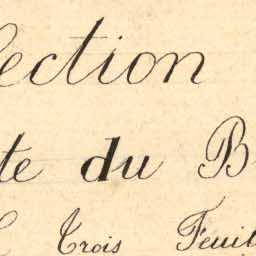 lection
te du B
Trois Feuil